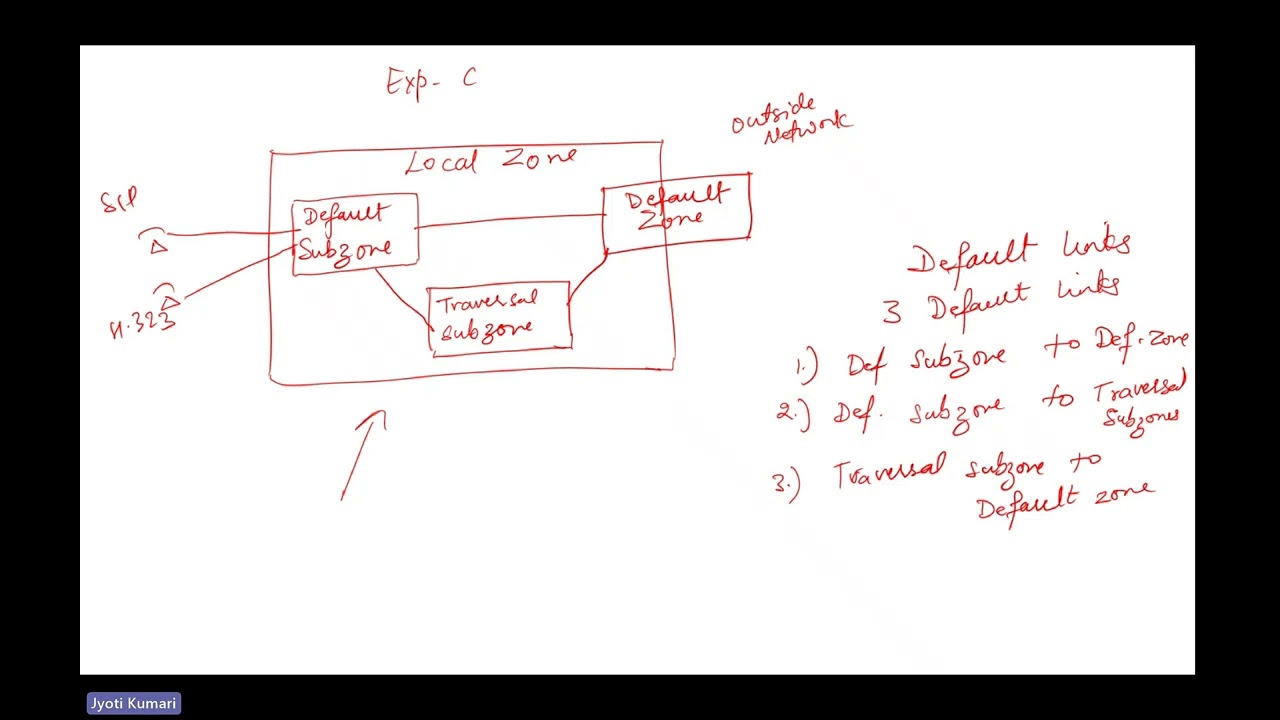 Exp- C
Outside
Network
Local Zone
SIP
Default
Subzone
Default
Zone
Traversal
subzone
H.323
Default links
3 Default links
1.) Def Subzone to Def. Zone
2.) Def. Subzone to Traversal
Subzones
3.) Traversal subzone to
Default zone
Jyoti Kumari